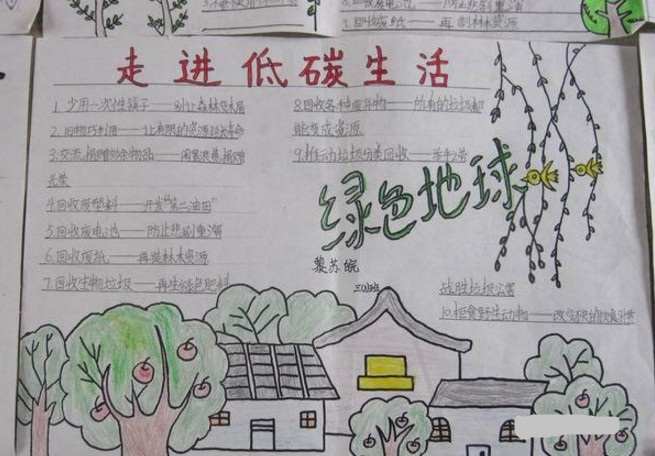 走进低碳生活
1.少用一次性筷子——别让森林变木屑
8.回收各种废弃物——所有的垃圾都
能变成资源
2.旧物巧利用——让有限的资源延长寿命
9.推动垃圾分类回收——举手之劳
3.交流、捐赠多余物品——闲置浪费,捐赠
光荣
4.回收废塑料——开发"第二油田"
5.回收废电池——防止悲剧重演
6.回收废纸——再造林木资源
7.回收生物垃圾——再生绿色肥料
绿色地球
黎苏皖
三(3)班
战胜垃圾公害
10.拒食野生动物——改变不良饮食习惯